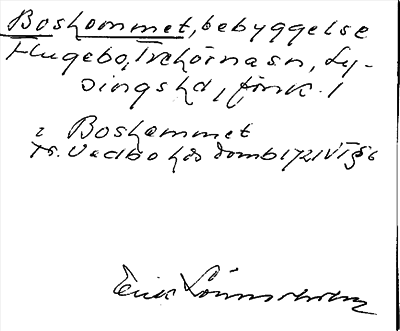 Boskommet, bebyggelse
Hugebo, Trehörna sn, Ly-
singshd, förk. 1
i Boskammet
N. Vedbo hds domb 1721 VT § 6
Erik